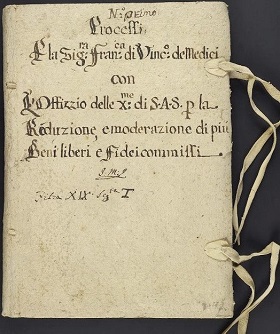 N.º Primo
Processi
E la Sig.ra Fran.ca di Vinc.o de Medici
con
L'Offizio delle x.me di S.A.S. p la
Reduzione, e moderazione di piu
Beni liberi e Fideicommissi.
XIX T